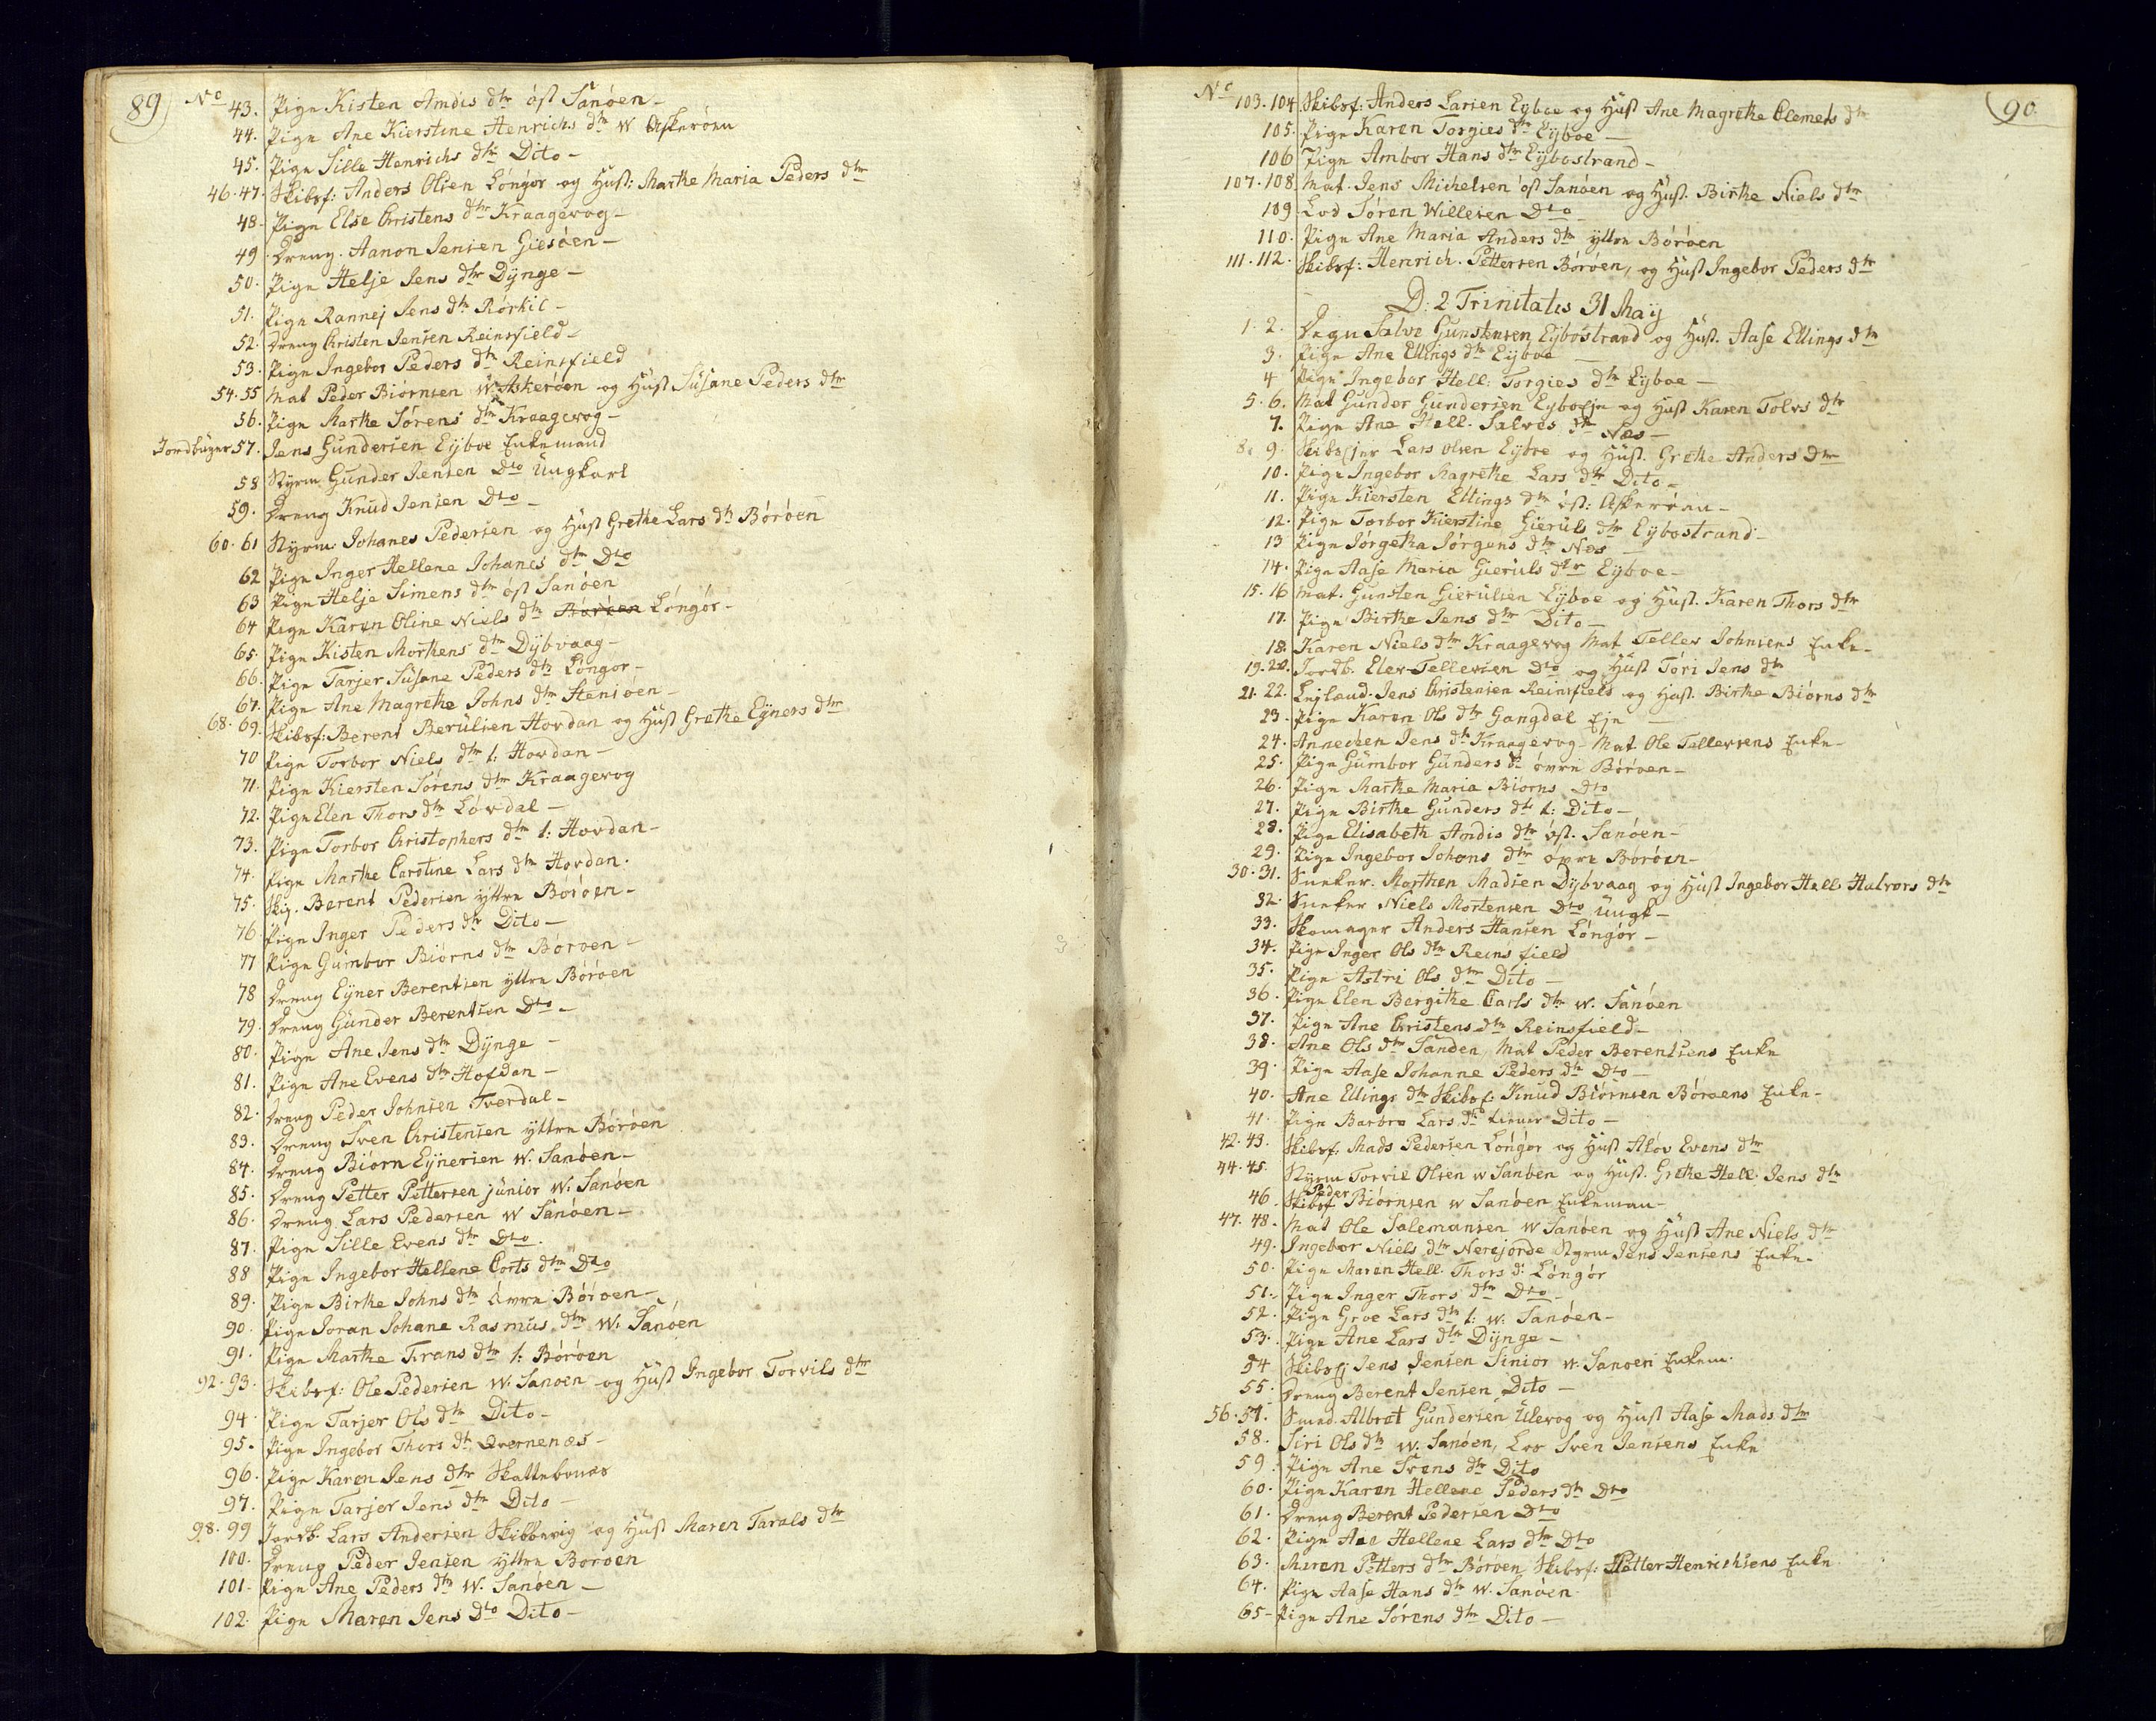 89
No
43. Pige Kisten Amdis dtr öst Sanöen -
44. Pige Ane Kierstine Henrichs dtr W Askeröen
45. Pige Sille Henrichs dtr Dito -
46. 47. Skibsf: Anders Olsen Löngör og Hust: Marthe Maria Peders dtr
48. Pige Else Christens dtr Kraagevog -
49. Dreng. Aanon Jensen Giesöen -
50. Pige Helje Jens dtr Dÿnge -
51. Pige Rannej Jens dtr Rörkil -
52. Dreng Christen Jensen Reinsfield -
53. Pige Ingebor Peders dtr Reinsfield
54. 55 Mat Peder Biörnsen W. Askeröen og Hust Susane Peders dtr
56. Pige Marthe Sörens dtr Kraagevog -
Jordbuger 57. Jens Gundersen Eÿboe Enkemand
58 Stÿrm. Gunder Jensen Dto Ungkarl
59. Dreng Knud Jensen Dto -
60. 61 Stÿrm: Johanes Pedersen og Hust Grethe Lars dtr Böröen
62 Pige Inger Hellene Johanes dtr Dto
63 Pige Helje Simens dtr öst Sanöen
64 Pige Karen Oline Niels dtr Böröen Löngör -
65. Pige Kisten Morthens dtr Dÿbvaag -
66. Pige Tarjer Susane Peders dtr Löngör -
67. Pige Ane Magrethe Johns dtr Stensöen -
68. 69. Skibsf: Berent Berulsen Hovdan og Hust Grethe Eÿners dtr
70 Pige Torbor Niels dtr l: Hovdan -
71. Pige Kiersten Sörens dtr Kraagevog
72. Pige Elen Thors dtr Lövdal -
73. Pige Torbor Christophers dtr l: Hovdan -
74. Pige Marthe Carotine Lars dtr Hovdan.
75. Skig. Berent Pedersen ÿttre Böröen -
76 Pige Inger Peders dtr Dito -
77 Pige Gumbor Biörns dtr Böröen -
78 Dreng Eÿner Berentsen ÿttre Böröen
79. Dreng Gunder Berentsen Dto -
80. Pige Ane Jens dtr Dÿnge -
81. Pige Ane Evens dtr Hofdan -
82. Dreng Peder Johnsen Tverdal -
83. Dreng Sven Christensen ÿttre Böröen
84. Dreng Biörn Eÿnersen W. Sanöen -
85. Dreng Petter Pettersen junior W. Sanöen
86. Dreng Lars Pedersen W Sanöen -
87. Pige Sille Evens dtr Dto.
88 Pige Ingebor Hellene Corts dtr Dto
89. Pige Birthe Johns dtr övre Böröen -
90. Pige Joran Johane Rasmus dtr W. Sanöen
91. Pige Marthe Frans dtr l: Böröen
92. 93. Skibsf: Ole Pedersen W. Sanöen og Hust Ingebor Torvils dtr
94. Pige Tarjer Ols dtr Dito -
95. Pige Ingebor Thors dtr Qvernenæs -
96. Pige Karen Jens dtr Skattebonæs
97. Pige Tarjer Jens dtr Dito -
98. 99 Jordb. Lars Andersen Skibbevig og Hust Maren Tarals dtr
100. Dreng Peder Jensen ÿttre Böröen
101. Pige Ane Peders dtr W. Sanöen -
102. Pige Maren Jens Dto Dito -
90
No
103. 104 Skibsf: Anders Larsen Eÿboe og Hust Ane Magrethe Clemets dtr
105. Pige Karen Torgies dtr Eÿboe -
106 Pige Ambor Hans dtr Eÿbostrand -
107. 108. Mat. Jens Michelsen öst Sanöen og Hust. Birthe Niels dtr
109 Lod Sören Willesen Dto
110. Pige Ane Maria Anders dtr ÿttre Böröen
111. 112. Skibsf: Henrich Pettersen Böröen, og Hust Ingebor Peders dtr
D. 2 Trinitatis 31 Maÿ
1. 2. Degn Salve Gunstensen Eÿbostrand og Hust. Aase Ellings dtr
3. Pige Ane Ellings dtr Eÿboe -
4 Pige Ingebor Hell: Torgies dtr Eÿboe -
5. 6. Mat Gunder Gundersen Eÿboeje og Hust Karen Tolvs dtr
7. Pige Ane Hell. Salves dtr Næs -
8. 9. Skibsfjer Lars Olsen Eÿboe og Hust. Grethe Anders dtr
10. Pige Ingebor Magrethe Lars dtr Dito -
11. Pige Kiersten Ellings dtr öst: Askeröen -
12. Pige Torbor Kierstine Gieruls dtr Eÿbostrand -
13 Pige Jörgetha Jörgens dtr Næs -
14. Pige Aase Maria Gieruls dtr Eÿboe -
15. 16 Mat. Gunsten Gierulsen Eÿboe og Hust. Karen Thors dtr
17. Pige Birthe Jens dtr Dito -
18. Karen Niels dtr Kraagevog Mat Tellev Johnsens Enke -
19. 20. Jordb. Elev Tellevsen Dto og Hust Töri Jens dtr
21. 22. Lejland. Jens Christensen Reinsfield og Hust. Birthe Biörns dtr
23. Pige Karen Ols dtr Gangdal Eje -
24. Annechen Jens dtr Kraagevog Mat Ole Tellevsens Enke -
25. Pige Gumbor Gunders dtr övre Böröen -
26. Pige Marthe Maria Biörns Dto
27. Pige Birthe Gunders dtr l: Dito -
28. Pige Elisabeth Amdis dtr öst. Sanöen -
29. Pige Ingebor Johans dtr övre Böröen -
30. 31. Sneker. Morthen Madsen Dÿbvaag og Hust Ingebor Hell Halvors dtr
32. Sneker Niels Mortensen Dto Ungk -
33. Skomager Anders Hansen Löngör -
34. Pige Inger Ols dtr Reinsfield
35. Pige Astri Ols dtr Dito -
36. Pige Elen Bergithe Carls dtr W. Sanöen
37. Pige Ane Christens dtr Reinsfield -
38. Ane Ols dtr Sanden, Mat Peder Berentsens Enke
39. Pige Aase Johanne Peders dtr Dto -
40. Ane Ellings dtr Skibsf: Knud Biörnsen Böröens Enke -
41. Pige Barbro Lars dtr Dito -
42. 43. Skibsf. Mads Pedersen Löngör og Hust Alöv Evens dtr
44. 45. Stÿrm Torvil Olsen W Sanöen og Hust. Grethe Hell. Jens dtr
46. Skibsf Peder Biörnsen W Sanöen Enkeman -
47. 48. Mat Ole Salemansen W Sanöen og Hust Ane Niels dtr
49. Ingebor Niels dtr Nerejorde Stÿrm Jens Jensens Enke -
50. Pige Maren Hell. Thors dr Löngör
51. Pige Inger Thors dtr Dto -
52. Pige Groe Lars dtr l: W. Sanöen -
53. Pige Ane Lars dtr Dÿnge -
54 Skibsfj Jens Jensen Sinior W. Sanöen Enkem.
55. Dreng Berent Jensen Dito -
56. 57. Smed. Albret Gundersen Ulevog og Hust Aase Mads dtr
58. Siri Ols dtr W. Sanöen, Loo Sven Jensens Enke
59. Pige Ane Svens dtr Dito
60. Pige Karen Hellene Peders dtr Dto
61. Dreng Berent Pedersen Dto
62. Pige Ane Hellene Lars dtr Dto
63. Maren Petters dtr Böröen Skibsf: Petter Henrichsens Enke
64. Pige Aase Hans dtr W. Sanöen
65 - Pige Ane Sörens dtr Dito -